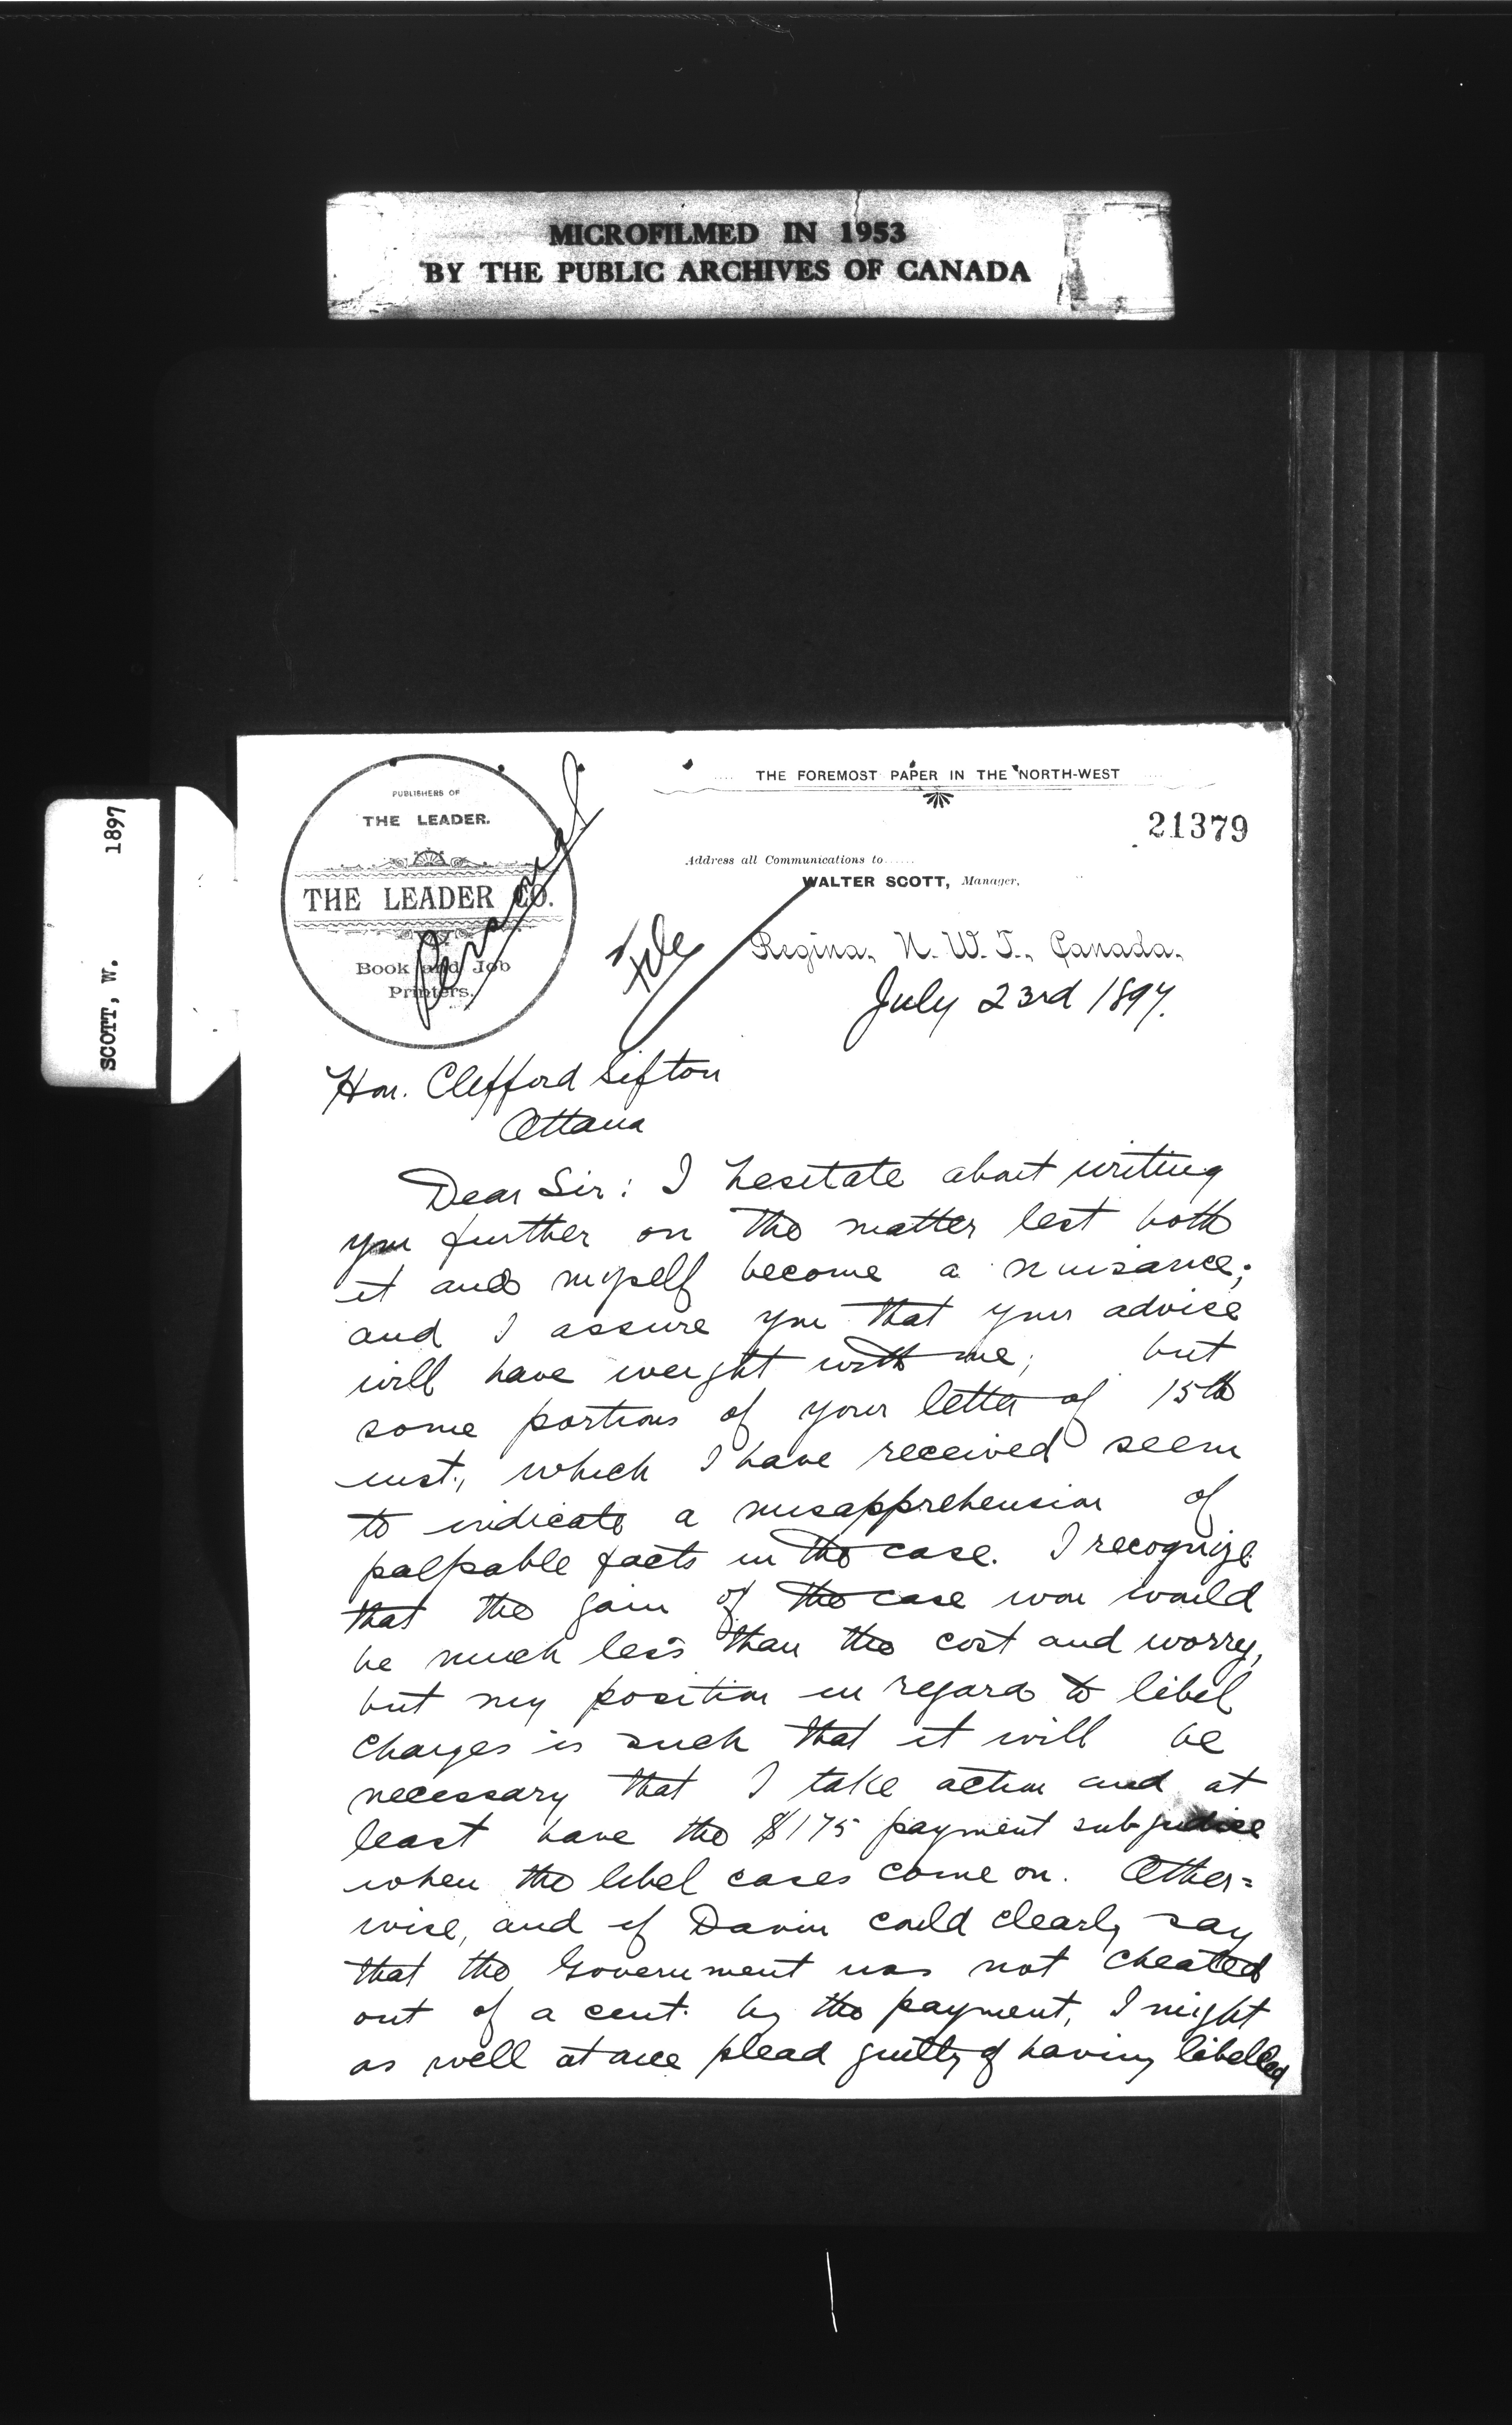 MICROFILMED IN 1953
BY THE PUBLIC ARCHIVES OF CANADA
SCOTT, W. 1897
PUBLISHERS OF
THE LEADER.
THE LEADER CO.
Book and Job
Printers.
Personal
THE FOREMOST PAPER IN THE NORTH-WEST
21379
Address all Communications to......
WALTER SCOTT, Manager.
File
Regina, N. W. T., Canada,
July 23rd 1897.
Hon. Clifford Sifton
Ottawa
Dear Sir: I hesitate about writing
you further on the matter lest both
it and myself become a nuisance;
and I assure you that your advise
will have weight with me; but
some portions of your letter of 15th
inst., which I have received seem
to indicate a misapprehension of
palpable facts in the case. I recognize
that the gain of the case won would
be much less than the cost and worry,
but my position in regard to libel
charges is such that it will be
necessary that I take action and at
least have the $175 payment subjudice
when the libel cases come on. Other=
wise, and if Davin could clearly say
that the Government was not cheated
out of a cent by the payment, I might
as well at once plead guilty of having libelled